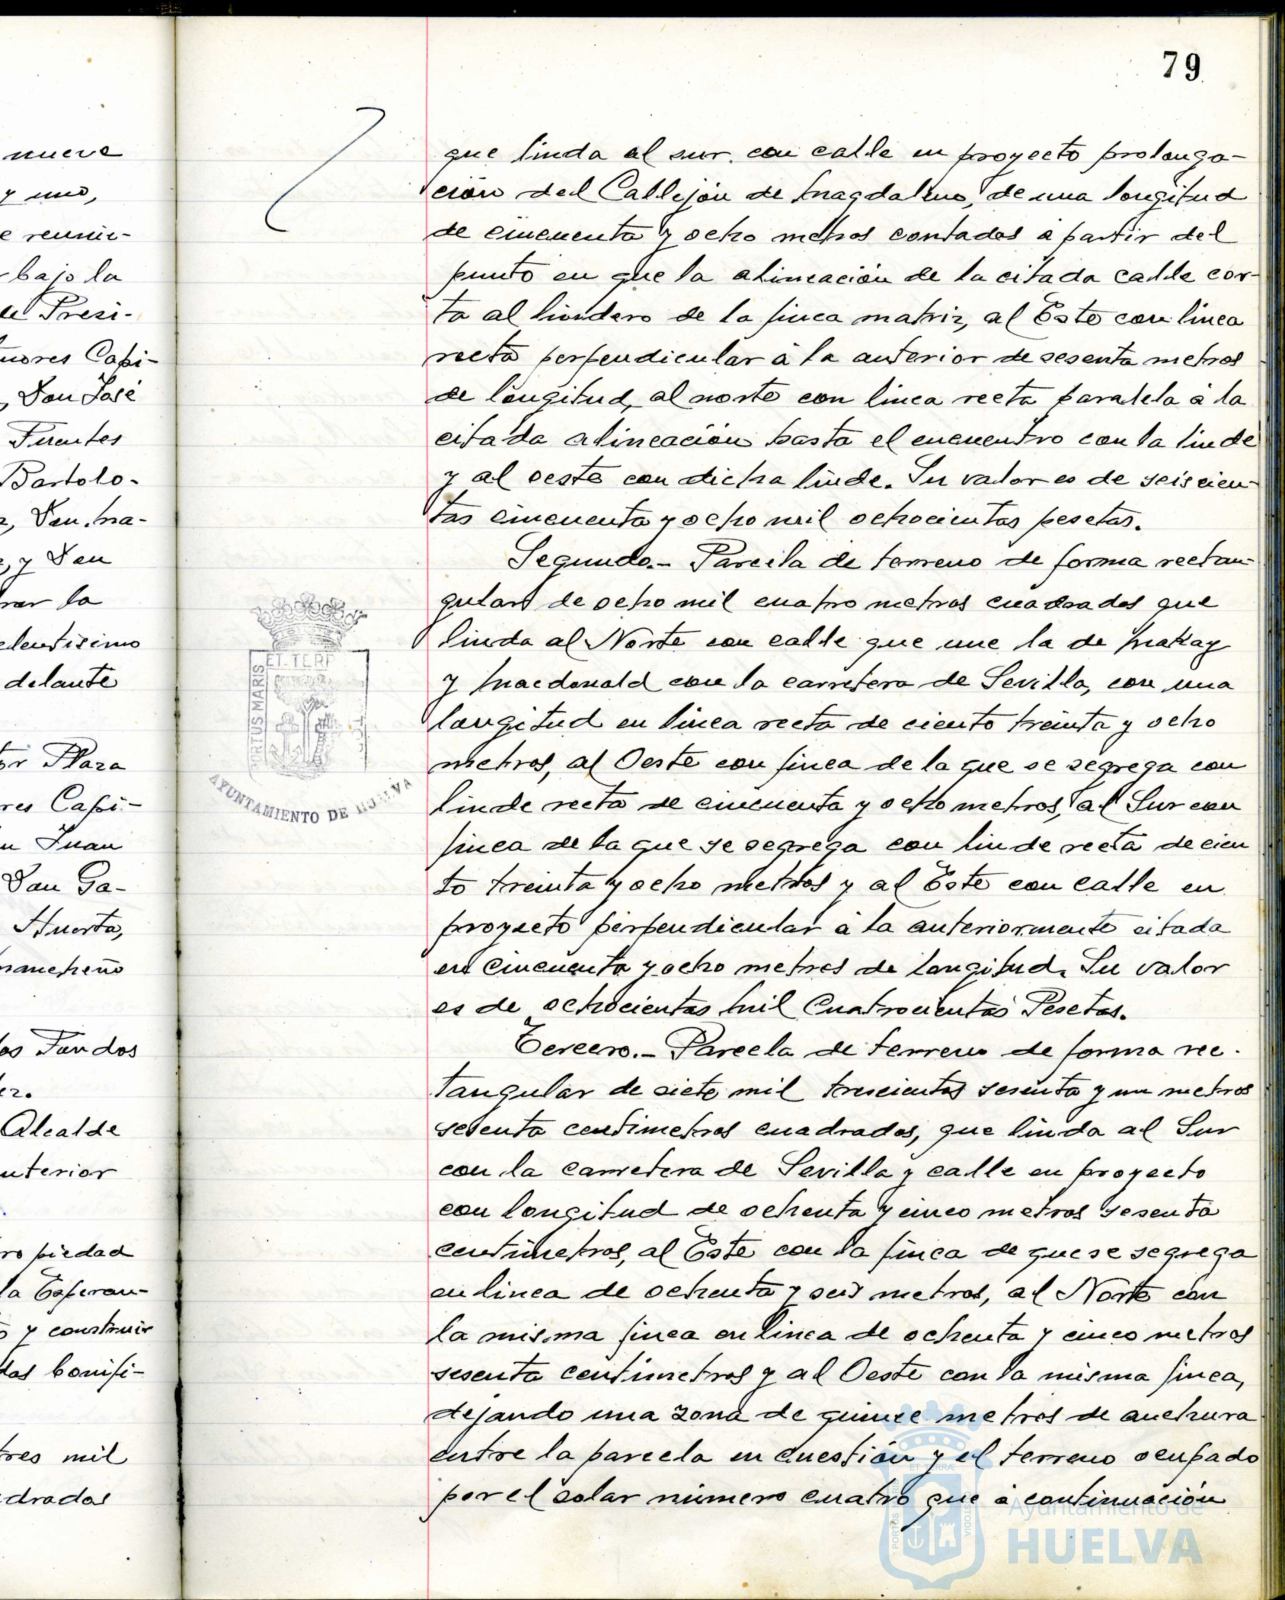 79
nueve
y uno,
e reunie-
r bajo la
de Presi-
ñores Capi-
, Don José
Fuentes
Bartolo-
z, Don Ma-
e, y Don
rar la
elentisimo
delante
tor Plaza
res Capi-
n Juan
Don Ga-
Huerta,
mancheño
los Fondos
ez.
Alcalde
nterior
ro piedad
la Esperan-
o y construir
das bonifi-
tres mil
drados
que linda al sur con calle en proyecto prolonga-
ción del Callejón de Magdaleno, de una longitud
de cincuenta y ocho metros contados a partir del
punto en que la alineación de la citada calle cor-
ta al lindero de la finca matriz, al Este con linea
recta perpendicular á la anterior de sesenta metros
de longitud, al norte con linea recta paralela á la
citada alineación hasta el encuentro con la linde
y al oeste con dicha linde. Su valor es de seiscien-
tas cincuenta y ocho mil ochocientas pesetas.
Segundo.- Parcela de terreno de forma rectan-
gular de ocho mil cuatro metros cuadrados que
linda al Norte con calle que une la de Makay
y Macdonald con la carretera de Sevilla, con una
longitud en linea recta de ciento treinta y ocho
metros, al Oeste con finca de la que se segrega con
linde recta de cincuenta y ocho metros, al Sur con
finca de la que se segrega con linde recta de cien
to treinta y ocho metros y al Este con calle en
proyecto perpendicular á la anteriormente citada
en cincuenta y ocho metros de longitud. Su valor
es de ochocientas mil Cuatrocientas Pesetas.
Tercero.- Parcela de terreno de forma rec-
tangular de siete mil trescientos sesenta y un metros
sesenta centimetros cuadrados, que linda al Sur
con la carretera de Sevilla y calle en proyecto
con longitud de ochenta y cinco metros sesenta
centimetros, al Este con la finca de que se segrega
en linea de ochenta y seis metros, al Norte con
la misma finca en linea de ochenta y cinco metros
sesenta centimetros y al Oeste con la misma finca,
dejando una zona de quince metros de anchura
entre la parcela en cuestión y el terreno ocupado
por el solar número cuatro que á continuación
ET TERR
PORTUS MARIS
AYUNTAMIENTO DE HUELVA
Ayuntamiento de
HUELVA